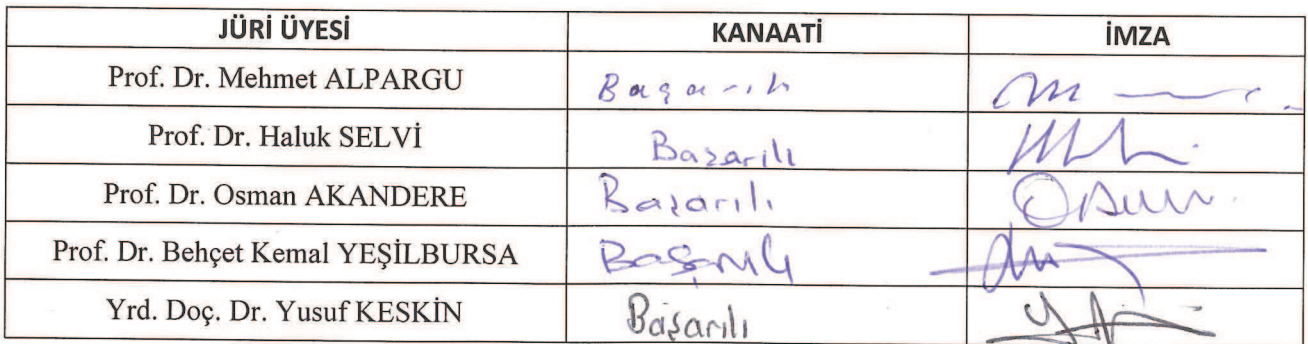 JÜRİ ÜYESİ KANAATİ İMZA
Prof. Dr. Mehmet ALPARGU Başarılı
Prof. Dr. Haluk SELVİ Başarılı
Prof. Dr. Osman AKANDERE Başarılı
Prof. Dr. Behçet Kemal YEŞİLBURSA Başarılı
Yrd. Doç. Dr. Yusuf KESKİN Başarılı